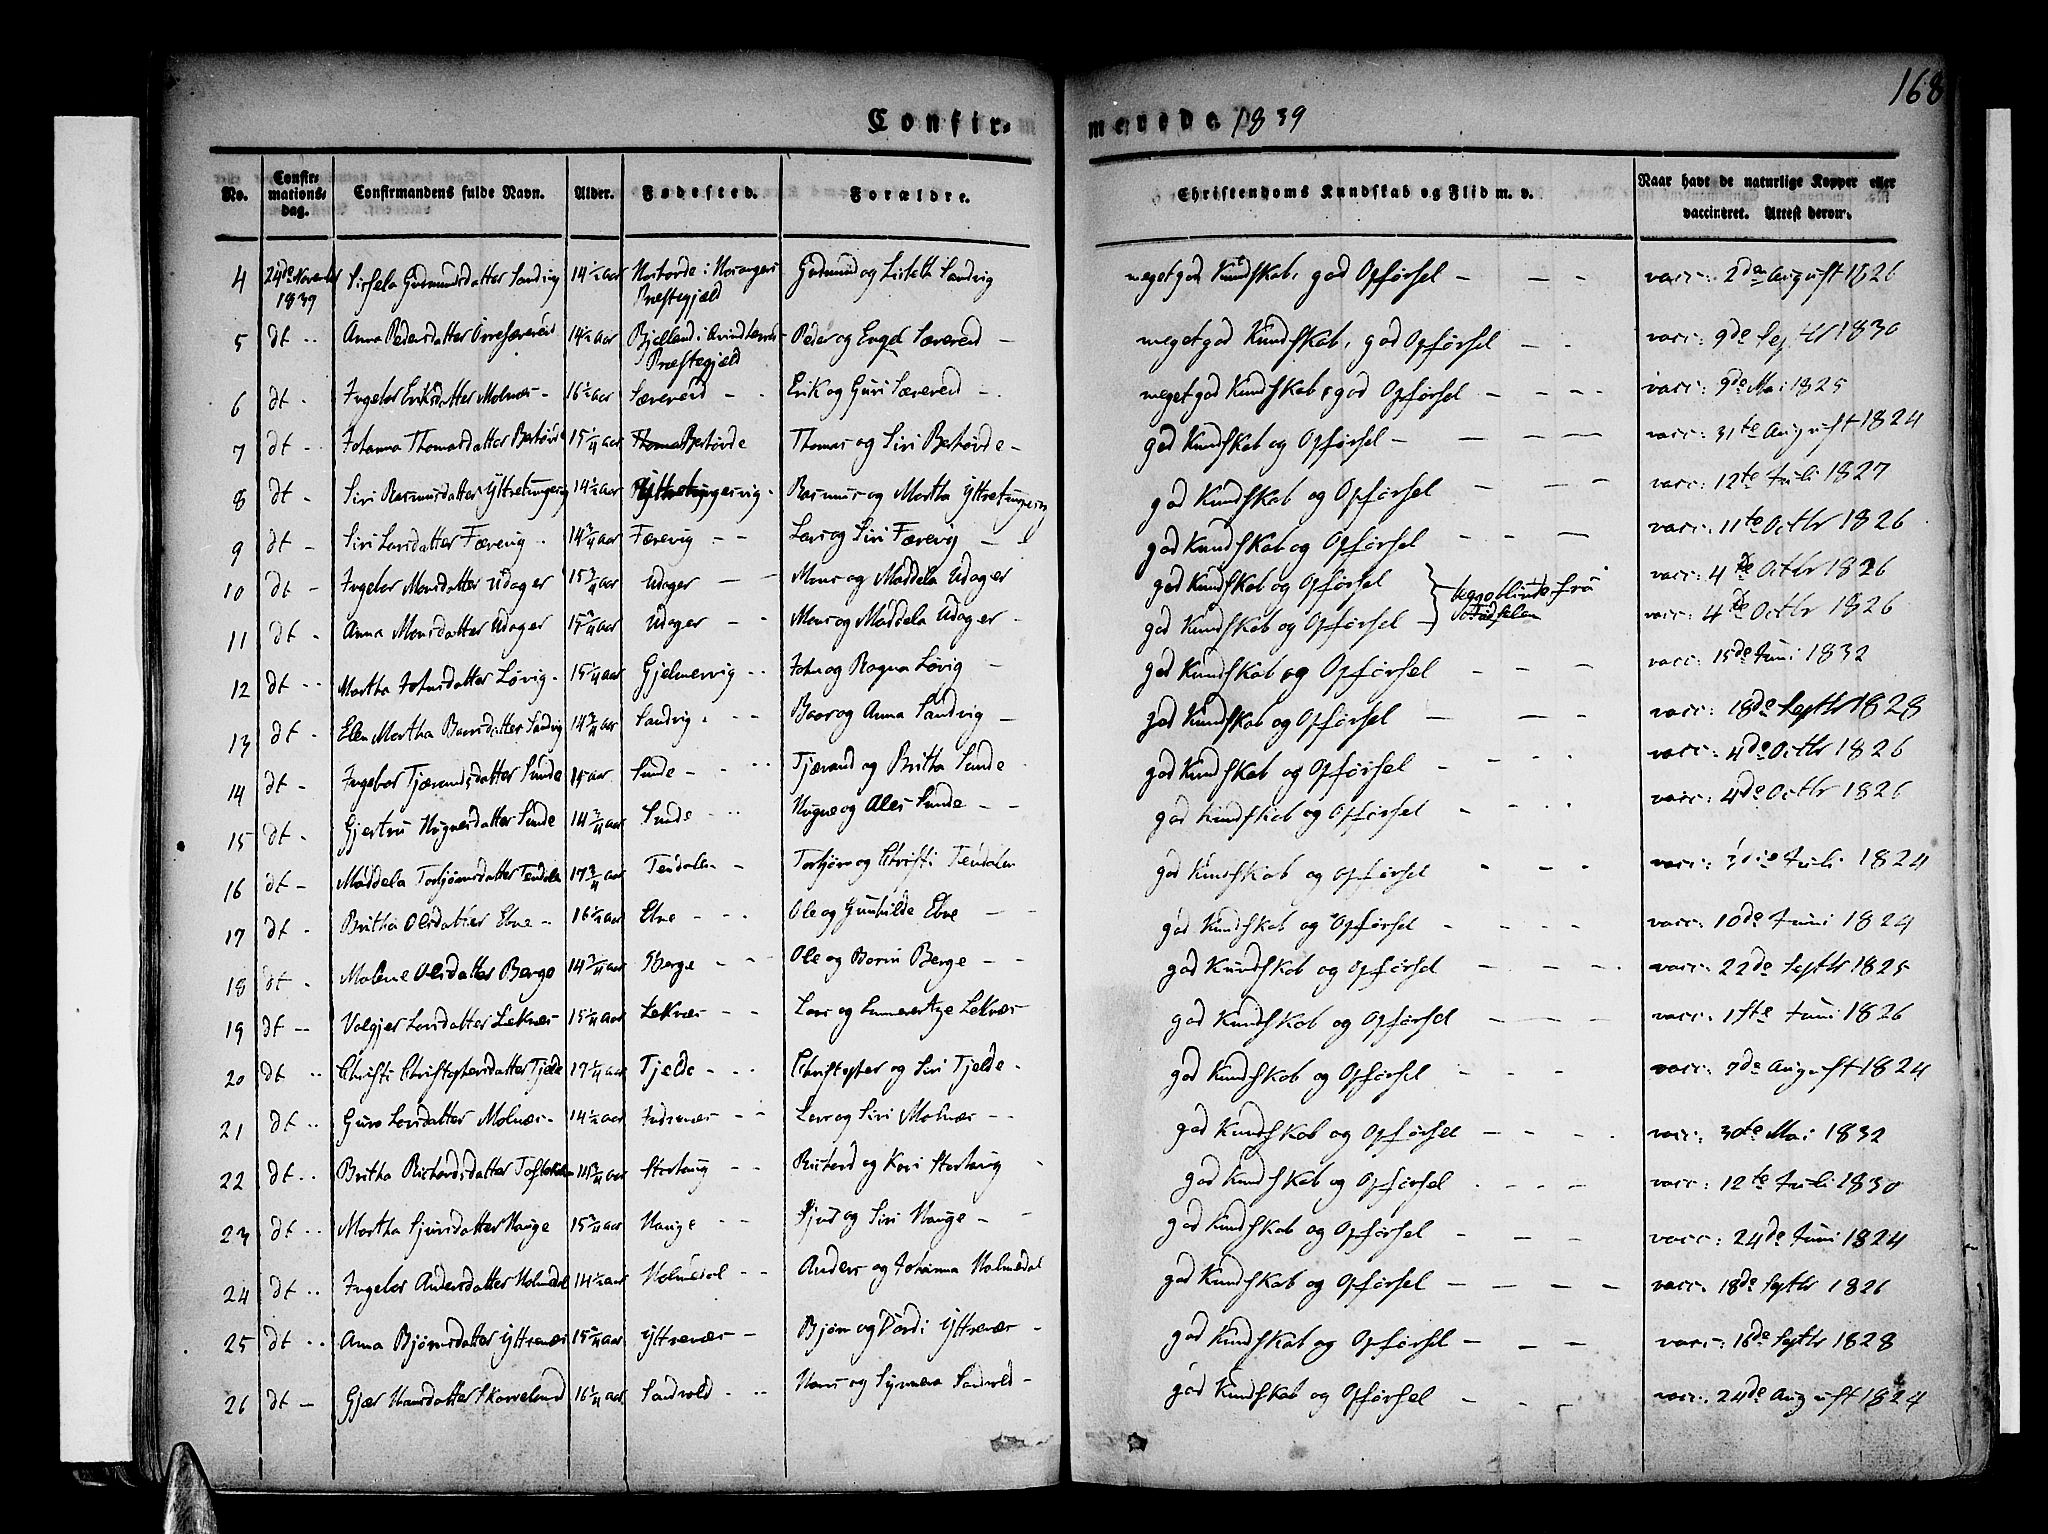 168
Confirmerede 1839
No. Confirmationsdag. Confirmandens fulde Navn. Alder. Fødested. Forældre. Christendoms Kundskab og Flid m. v. Naar havt de naturlige Kopper eller vaccineret. Attest derom.
4 24de November 1839 Sissela Gudmundsdatter Sandvig 14 1/2 aar i Præstegjeld Gudmund og Sandvig meget god Kundskab, god Opførsel — — — vacc: 2den August 1826
5 dt Anna Pedersdatter 14 1/2 aar Bjelland i Præstegjeld Peder og Engel Særeved — meget god Kundskab, god Opførsel — - vacc: 9de Septr 1830
6 dt - Ingebor Eriksdatter Molnæs - 16 1/2 aar Særeved - - Erik og Guri Særeved - meget god Kundskab, god Opførsel — — — — vacc: 9de Mai 1825
7 dt - Johanna Thomasdatter 15 1/4 aar Thomas og Siri — god Kundskab og Opførsel — — — — vacc: 31te August 1824
8 dt - Siri Rasmusdatter 14 1/2 aar Rasmus og Martha god Kundskab og Opførsel - — — vacc: 12te Juli 1827
9 dt - Siri Larsdatter Færevig 14 3/4 aar Færevig - - Lars og Siri Færevig — god Kundskab og Opførsel - - — vacc: 11te Octbr 1826
10 dt - Ingebor Monsdatter Udager 15 3/4 aar Udager - - Mons og Maddela Udager god Kundskab og Opførsel } vacc: 4de Octbr 1826
11 dt - Anna Monsdatter Udager aar Udager - - Mons og Maddela Udager - god Kundskab og Opførsel — vacc: 4de Octbr 1826
12 dt - Martha Johnsdatter Løvig - 15 1/4 aar Gjelmervig - John og Ragna Løvig — god Kundskab og Opførsel - — — vacc: 15de Juni 1832
13 dt - Elen Martha Baarsdatter Sandvig 14 3/4 aar Sandvig - - - Baar og Anna Sandvig — god Kundskab og Opførsel — — — vacc: 18de Septbr 1828
14 dt - Ingebor Tjærandsdatter Sunde aar Sunde - - Tjærand og Britha Sunde god Kundskab og Opførsel - - - vacc: 4de Octbr 1826
15 dt - Gjertru Sunde 14 3/4 aar Sunde - - og Sunde - - god Kundskab og Opførsel - - vacc: 4de Octbr 1826
16 dt - Maddela Torbjørnsdatter Teudalen 17 3/4 aar Teudalen - Torbjørn og Christi Teudalen god Kundskab og Opførsel - — - vacc: Juli 1824
17 dt - Britha Olsdatter Ebne - 16 1/2 aar Ebne - - - Ole og Gunhilde Ebne - - god Kundskab og Opførsel - - - - vacc: 10de Juni 1824
18 dt - Malene Olsdatter Berge 14 3/4 aar Berge - - Ole og Berge - - god Kundskab og Opførsel - - - - vacc: 22de Septbr 1825
19 dt - Valgjer Larsdatter Leknæs 15 1/4 aar Leknæs - - Lars og Leknæs god Kundskab og Opførsel — — — vacc: 1ste Juni 1826
20 dt Christi Christophersdatter Tjelde 17 1/4 aar Tjelde - - - Christopher og Siri Tjelde - god Kundskab og Opførsel - - - vacc: 7de August 1824
21 dt Guro Larsdatter Molnæs - 14 1/2 aar - - Lars og Siri Molnæs - - god Kundskab og Opførsel — - - vacc: 30te Mai 1832
22 dt Britha Richardsdatter 14 3/4 aar - - Richard og Kari god Kundskab og Opførsel - - - - vacc: 12te Juli 1830
23 dt Martha Sjursdatter Hauge aar Hauge - - Sjur og Siri Hauge - - god Kundskab og Opførsel - - - vacc: 24de Juni 1824
24 dt Ingebor Andersdatter Holmedal 14 1/2 aar Holmedal - - Anders og Johanna Holmedal god Kundskab og Opførsel — — — — vacc: 18de Septbr 1826
25 dt Anna Bjørnsdatter Yttrenæs aar Yttrenæs - Bjørn og Dordi Yttrenæs - god Kundskab og Opførsel — — — vacc: 16de Septbr 1828
26 dt - Hansdatter 16 1/4 aar Sandvold - - Hans og Synneva Sandvold - god Kundskab og Opførsel — — — vacc: 24de August 1824